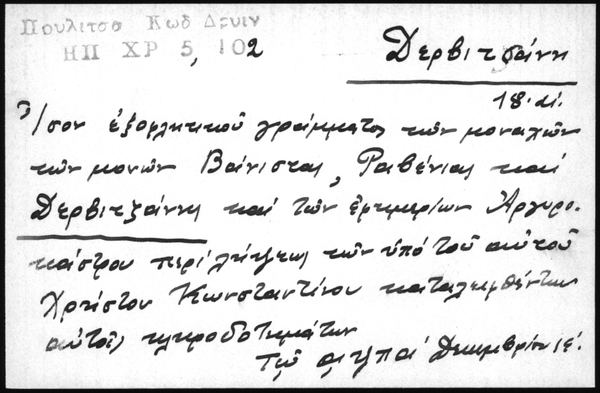 Πουλιτσα Κωδ Δρυιν
ΗΠ ΧΡ 5, 102
Δερβιτζάνη
18. αι.
Ἴσον ἐξοφλητικοῦ γράμματος τῶν μοναχῶν
τῶν μονῶν Βάνιστας, Ραβένιας καὶ
Δερβιτζάνης καὶ τῶν ἐφημερίων Ἀργυρο-
κάστρου περὶ λήψεως τῶν ὑπὸ τοῦ αὐτοῦ
Χρήστου Κωνσταντίνου καταλειφθέντων
αὐτοῖς κληροδοτημάτων
Τῷ αψπα Δεκεμβρίου ιέ.